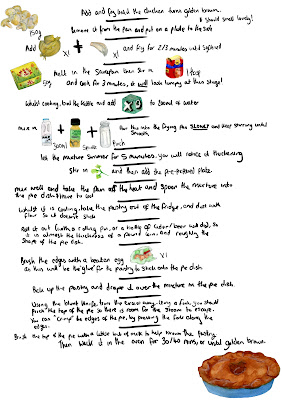 Add and fry until the chicken turns golden brown.
It should smell lovely!
50g
Remove it from the pan and put on a plate to the side
Add x1 + and fry for 2/3 minutes until softened
50g Melt in the saucepan then stir in 1 tbsp
and cook for 3 minutes, it will look lumpy at this stage!
Whilst cooking, boil the kettle and add x to 200ml of water
mix in + + Pour this into the frying pan SLOWLY and keep stirring until
300ml 5ml Pinch
let the mixture simmer for 5 minutes, you will notice it thickening
Stir in and then add the pre-prepared plate.
Mix well and take the pan off the heat and spoon the mixture into
the pie dish to cool
Whilst it is cooling, take the pastry out of the fridge, and dust with
flour so it doesn't stick
Roll it out (with a rolling pin, or a bottle of cider/beer will do), so
it is about the thickness of a pound coin, and roughly the
shape of the pie dish.
Brush the edges with a beaten egg x1
as this will be the 'glue' for the pastry to stick onto the pie dish.
Pick up the pastry and drape it over the mixture in the pie dish.
Using the blunt knife, trim the excess away. Using a fork, you should
prick the top of the pie so there is room for the steam to escape.
You can "crimp" the edges of the pie, by pressing the fork along the
edges.
Brush the top of the pie with a little bit of milk to help brown the pastry.
Then back it in the oven for 30/40 mins, or until golden brown.